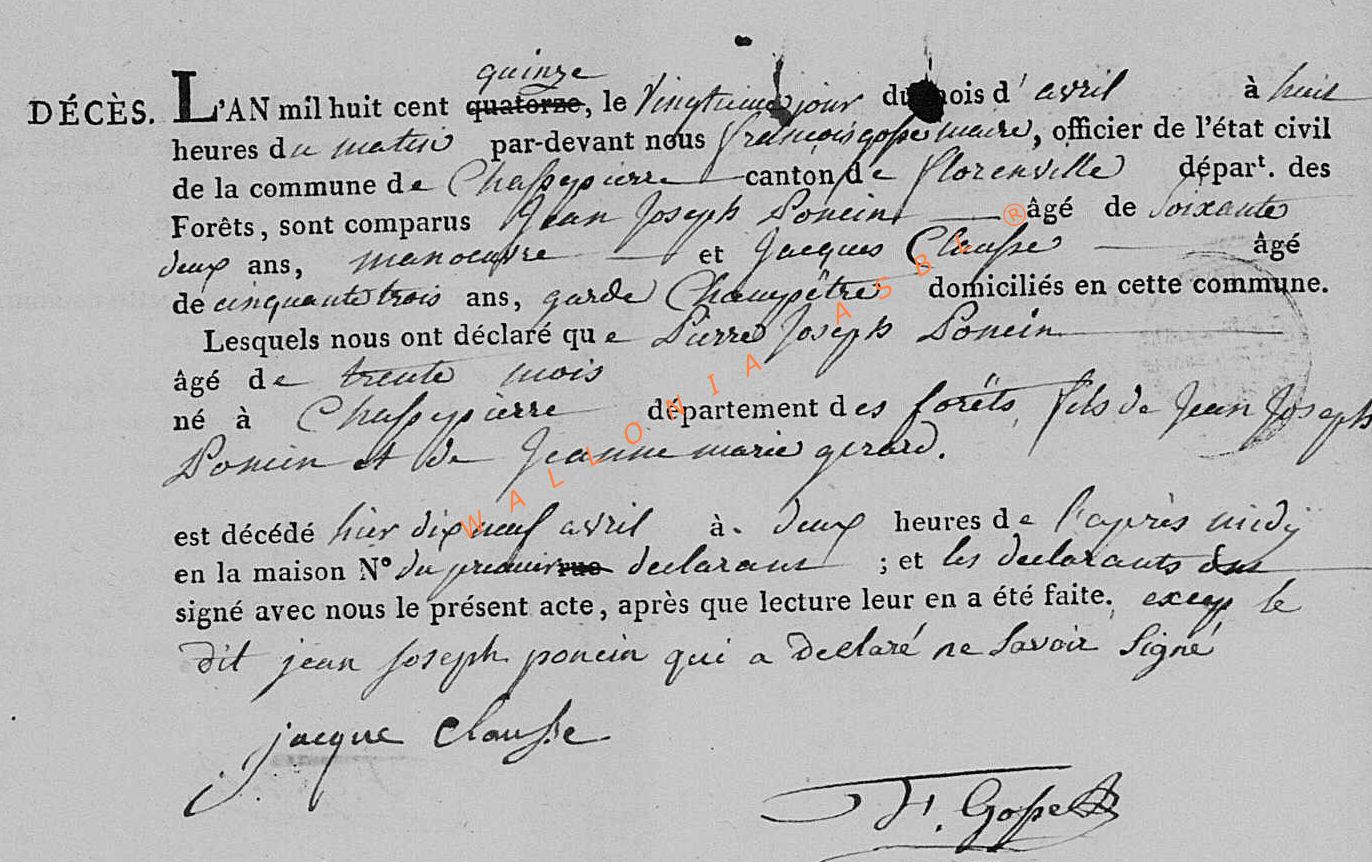 quinze
DÉCÈS. L'AN mil huit cent quatorze, le vingtieme jour du mois d'avril à huit
heures du matin par-devant nous françois gosse maire, officier de l'état civil
de la commune de Chassepierre canton de florenville départ. des
Forêts, sont comparus Jean Joseph Poncin âgé de soixante
deux ans, manoeuvre et Jacques Clausse âgé
de cinquante trois ans, garde Champêtre domiciliés en cette commune.
Lesquels nous ont déclaré que Pierre Joseph Poncin
âgé de trente mois
né à Chassepierre département des forêts, fils de Jean Joseph
Poncin et de Jeanne marie gerard.
est décédé hier dix neuf avril à deux heures de l'après midy
en la maison N° du premier rue declarant ; et les declarants ont
signé avec nous le présent acte, après que lecture leur en a été faite. excep le
dit jean joseph poncin qui a declaré ne savoir signé
jacque Clausse
F. Gosse
WALLONIA ASBL ®